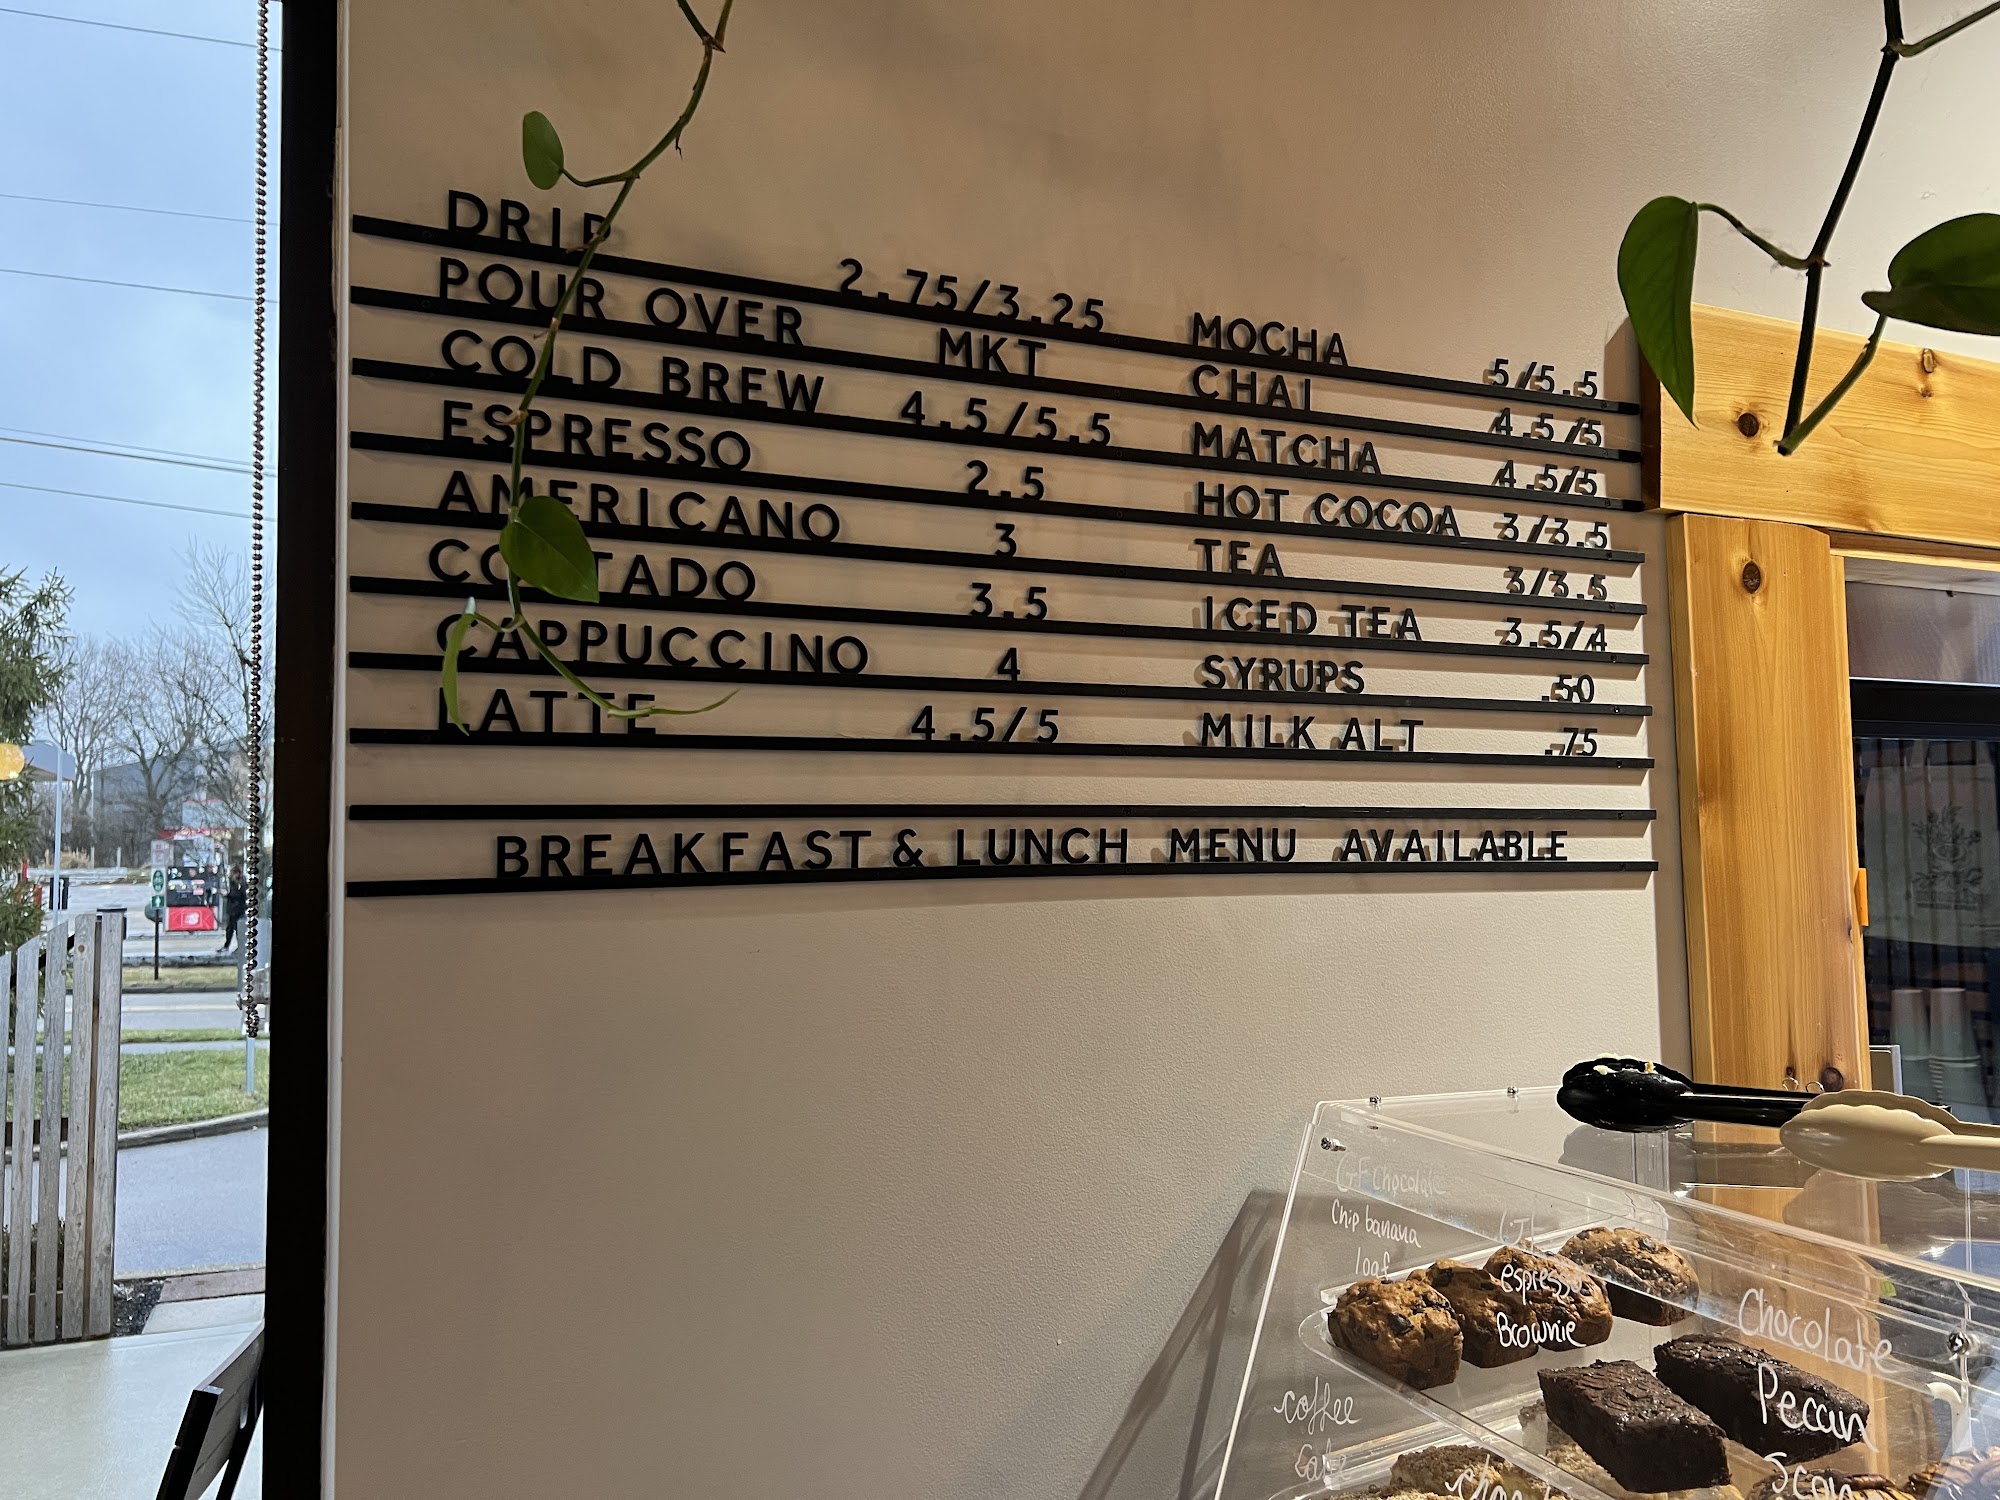 DRIP 2.75/3.25
POUR OVER MKT
COLD BREW 4.5/5.5
ESPRESSO 2.5
AMERICANO 3
CORTADO 3.5
CAPPUCCINO 4
LATTE 4.5/5
MOCHA 5/5.5
CHAI 4.5/5
MATCHA 4.5/5
HOT COCOA 3/3.5
TEA 3/3.5
ICED TEA 3.5/4
SYRUPS .50
MILK ALT .75
BREAKFAST & LUNCH MENU AVAILABLE
GF Chocolate
Chip banana
loaf
espresso
Brownie
Chocolate
Pecan
coffee
Cake